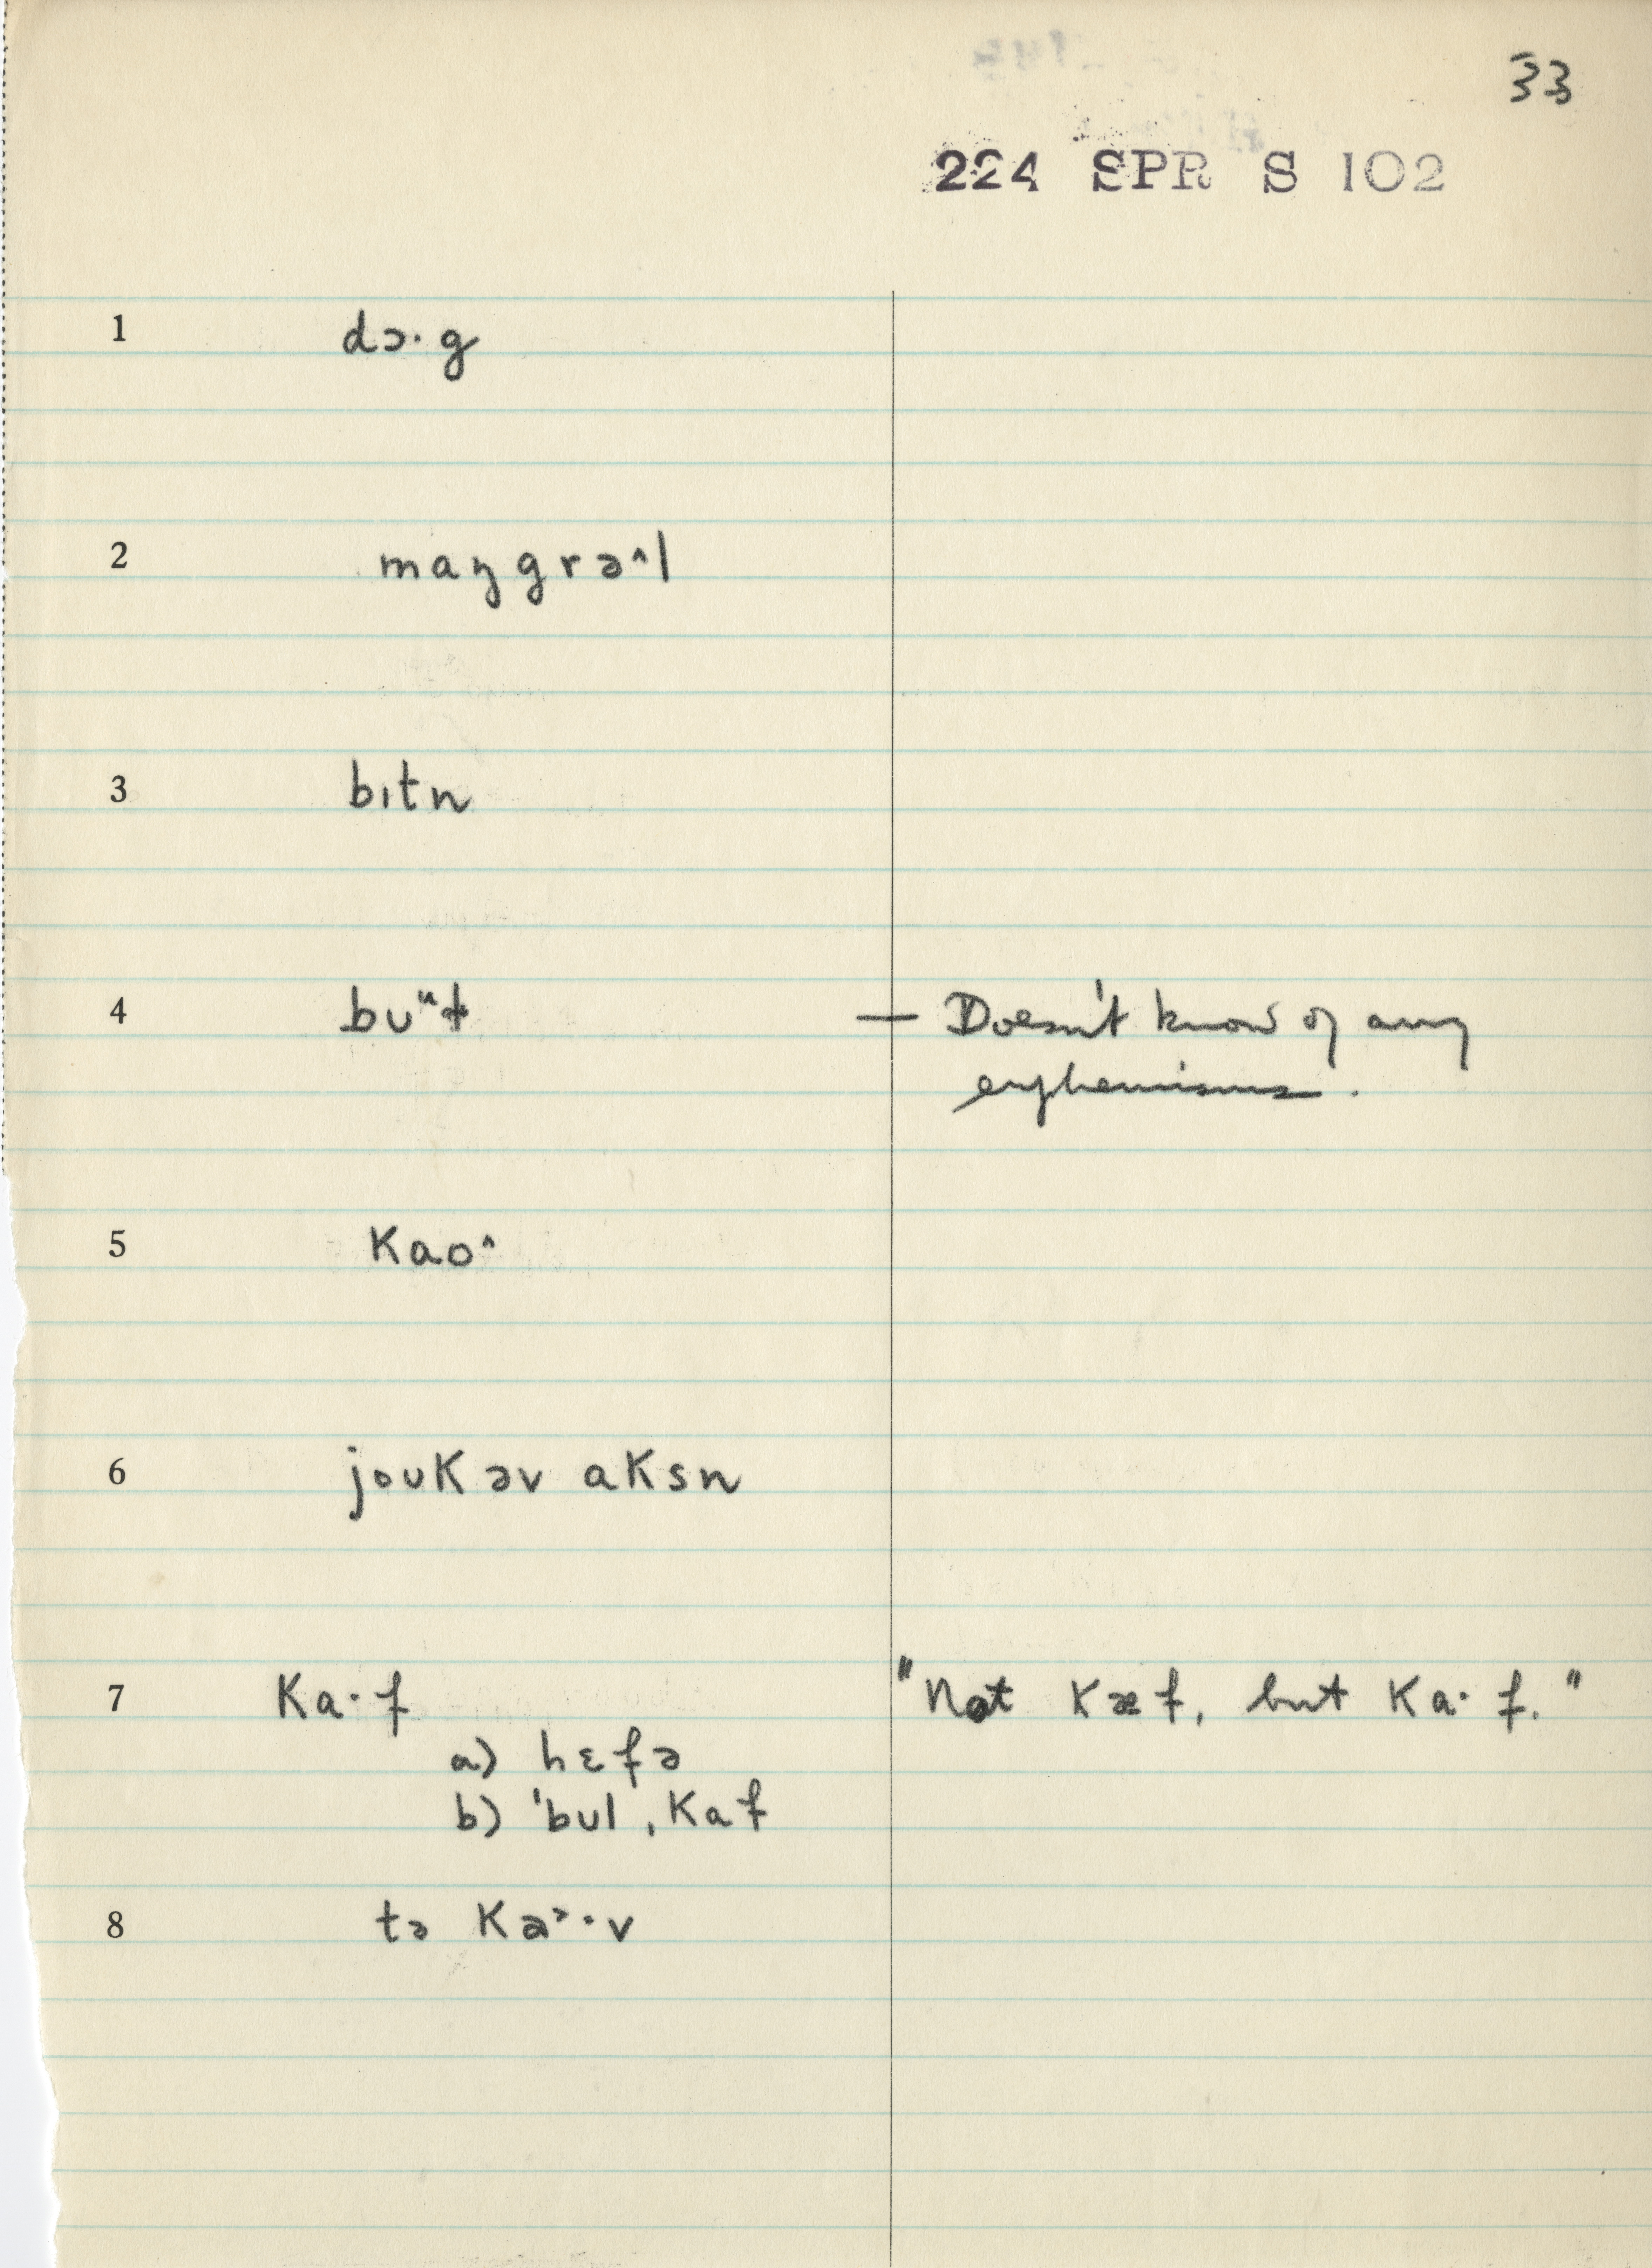 33
224 SPR S 102
1 dɔ·g
2 maŋgrə^l
3 bɪtn
4 bʊᵘɫ — Doesn't know of any
euphemisms.
5 Kao^
6 joʊK əv aKsn
7 Ka·f "Not Kæf, but Ka·f."
a) hɛfə
b) ˈbʊl ˌKaf
8 tə Ka˃·v